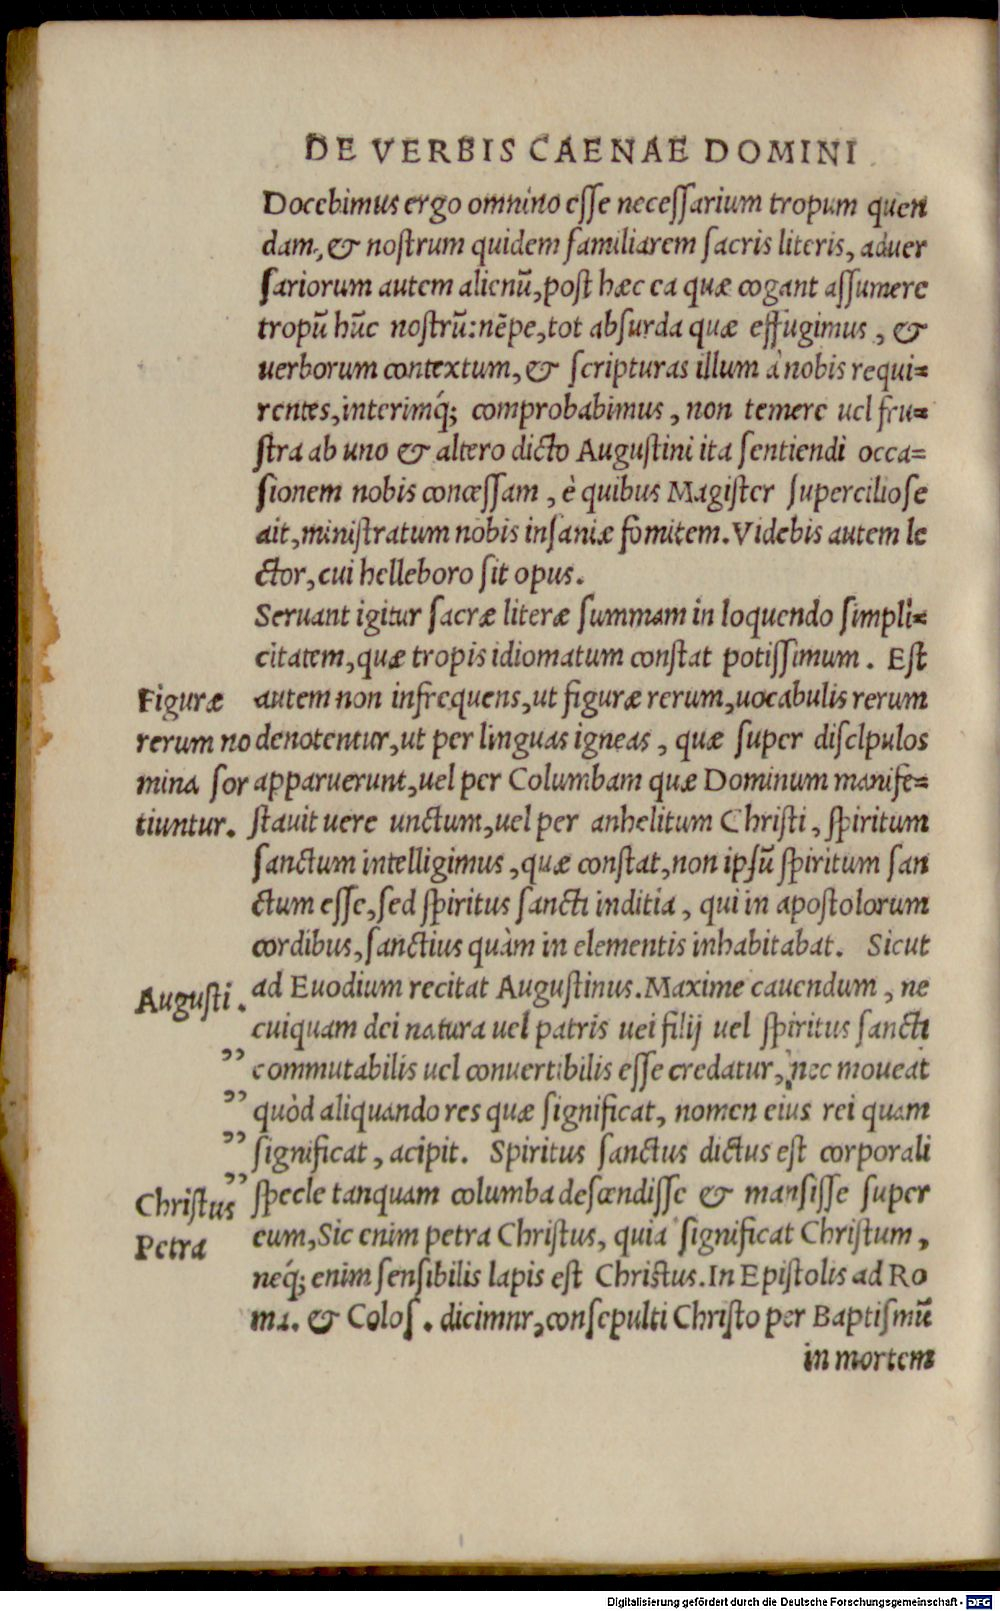 DE VERBIS CAENAE DOMINI
Docebimus ergo omnino esse necessarium tropum quen
dam, & nostrum quidem familiarem sacris literis, aduer
sariorum autem alienū, post hæc ea quæ cogant assumere
tropū hūc nostrū: nēpe, tot absurda quæ effugimus, &
uerborum contextum, & scripturas illum à nobis requi=
rentes, interimq́; comprobabimus, non temere uel fru=
stra ab uno & altero dicto Augustini ita sentiendi occa=
sionem nobis concessam, è quibus Magister superciliose
ait, ministratum nobis insaniæ fomitem. Videbis autem le
ctor, cui helleboro sit opus.
Seruant igitur sacræ literæ summam in loquendo simpli=
citatem, quæ tropis idiomatum constat potissimum. Est
Figuræ
autem non infrequens, ut figuræ rerum, uocabulis rerum
rerum no
denotentur, ut per linguas igneas, quæ super disclpulos
mina sor
apparuerunt, uel per Columbam quæ Dominum manife=
tiuntur.
stauit uere unctum, uel per anhelitum Christi, spiritum
sanctum intelligimus, quæ constat, non ipsū spiritum san
ctum esse, sed spiritus sancti inditia, qui in apostolorum
cordibus, sanctius quàm in elementis inhabitabat. Sicut
Augusti.
ad Euodium recitat Augustinus. Maxime cauendum, ne
cuiquam dei natura uel patris uei filij uel spiritus sancti
” commutabilis uel conuertibilis esse credatur, nec moueat
” quòd aliquando res quæ significat, nomen eius rei quam
” significat, acipit. Spiritus sanctus dictus est corporali
” specle tanquam columba descendisse & mansisse super
Christus
eum, Sic enim petra Christus, quia significat Christum,
Petra
neq́; enim sensibilis lapis est Christus. In Epistolis ad Ro
ma. & Colos. dicimnr, consepulti Christo per Baptismū
in mortem
Digitalisierung gefördert durch die Deutsche Forschungsgemeinschaft - DFG